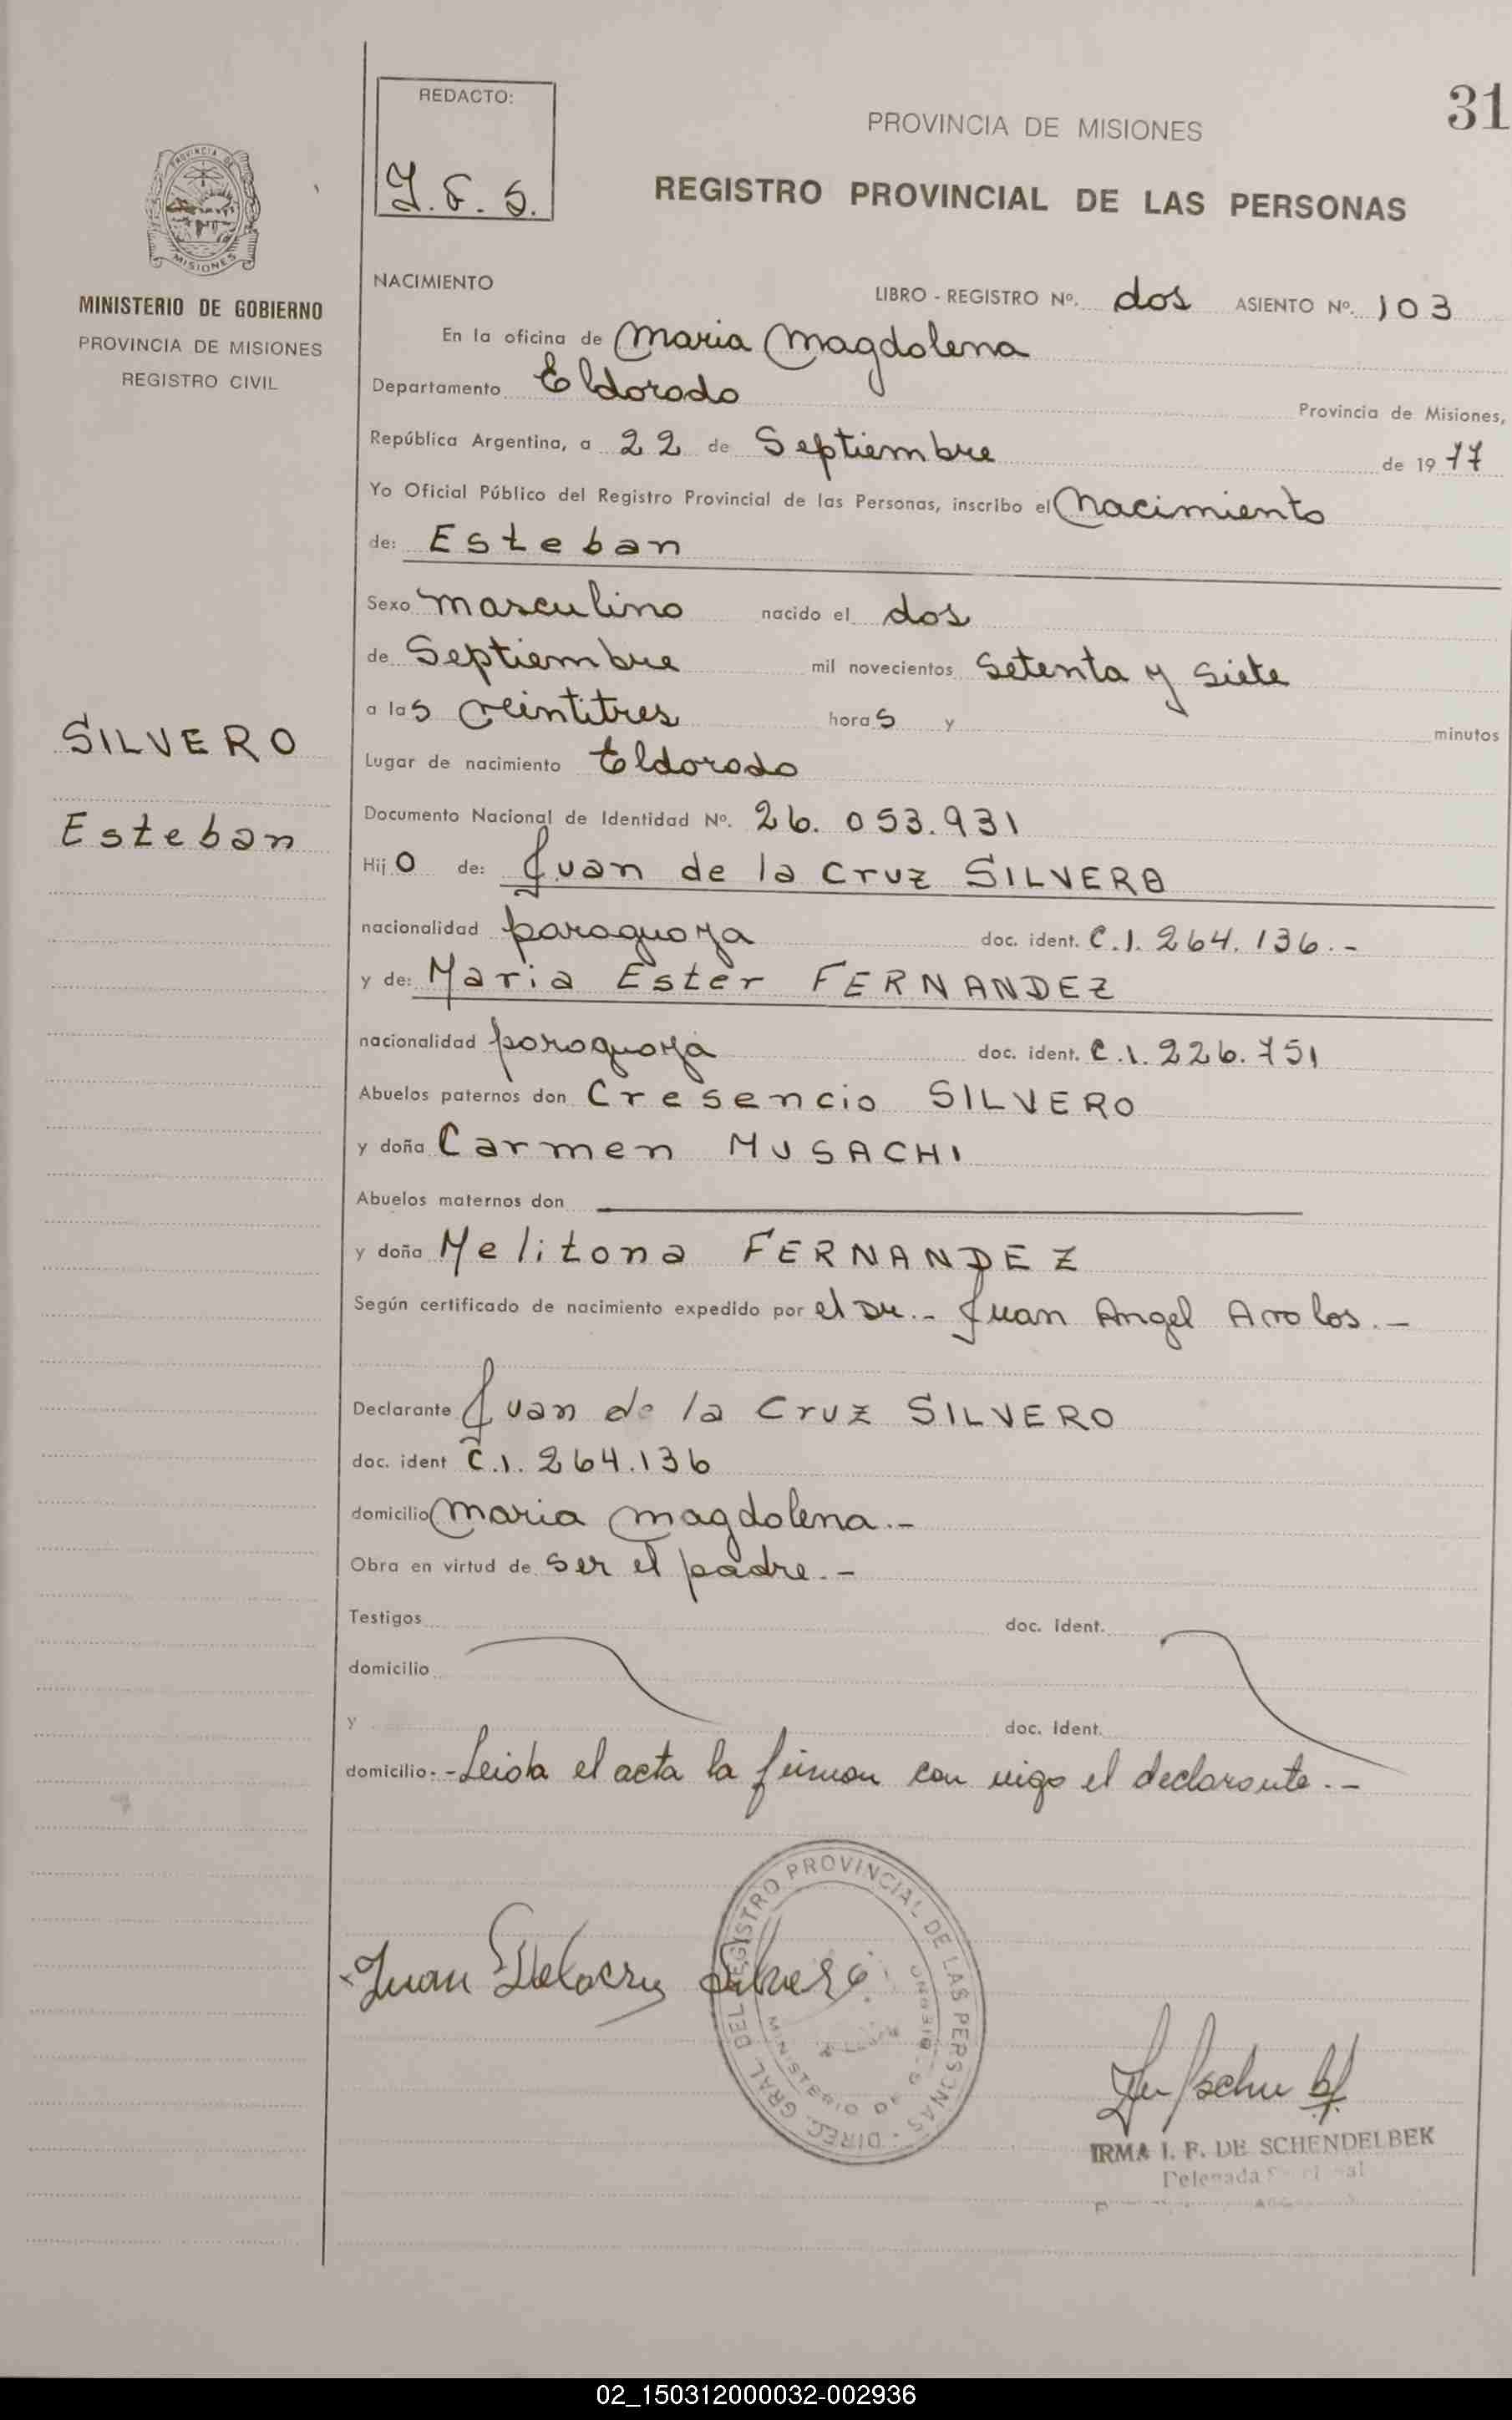 31
REDACTO:
PROVINCIA DE MISIONES
REGISTRO PROVINCIAL DE LAS PERSONAS
PROVINCIA DE
MISIONES
MINISTERIO DE GOBIERNO
PROVINCIA DE MISIONES
REGISTRO CIVIL
NACIMIENTO
LIBRO - REGISTRO Nº. dos ASIENTO Nº. 103
En la oficina de Maria Magdalena
Departamento Eldorado Provincia de Misiones,
República Argentina, a 22 de Septiembre de 1977
Yo Oficial Público del Registro Provincial de las Personas, inscribo el Nacimiento
de: Esteban
Sexo masculino nacido el dos
de Septiembre mil novecientos setenta y siete
a las veintitres horas y minutos
SILVERO
Esteban
Lugar de nacimiento Eldorado
Documento Nacional de Identidad Nº. 26.053.931
Hijo de: Juan de la Cruz SILVERO
nacionalidad paraguaya doc. ident. C.I. 264.136.-
y de: Maria Ester FERNANDEZ
nacionalidad paraguaya doc. ident. C.I. 226.751
Abuelos paternos don Cresencio SILVERO
y doña Carmen MUSACHI
Abuelos maternos don
y doña Melitona FERNANDEZ
Según certificado de nacimiento expedido por el Dr.- Juan Angel Arolos.-
Declarante Juan de la Cruz SILVERO
doc. ident C.I. 264.136
domicilio Maria Magdalena.-
Obra en virtud de ser el padre.-
Testigos doc. Ident.
domicilio
y doc. Ident.
domicilio.- Leida el acta la firman con migo el declarante.-
Juan Delacruz Silvero
DIREC. GRAL. DEL REGISTRO PROVINCIAL DE LAS PERSONAS
MINISTERIO DE GOBIERNO
IRMA I. F. DE SCHENDELBEK
Delegada
02_150312000032-002936